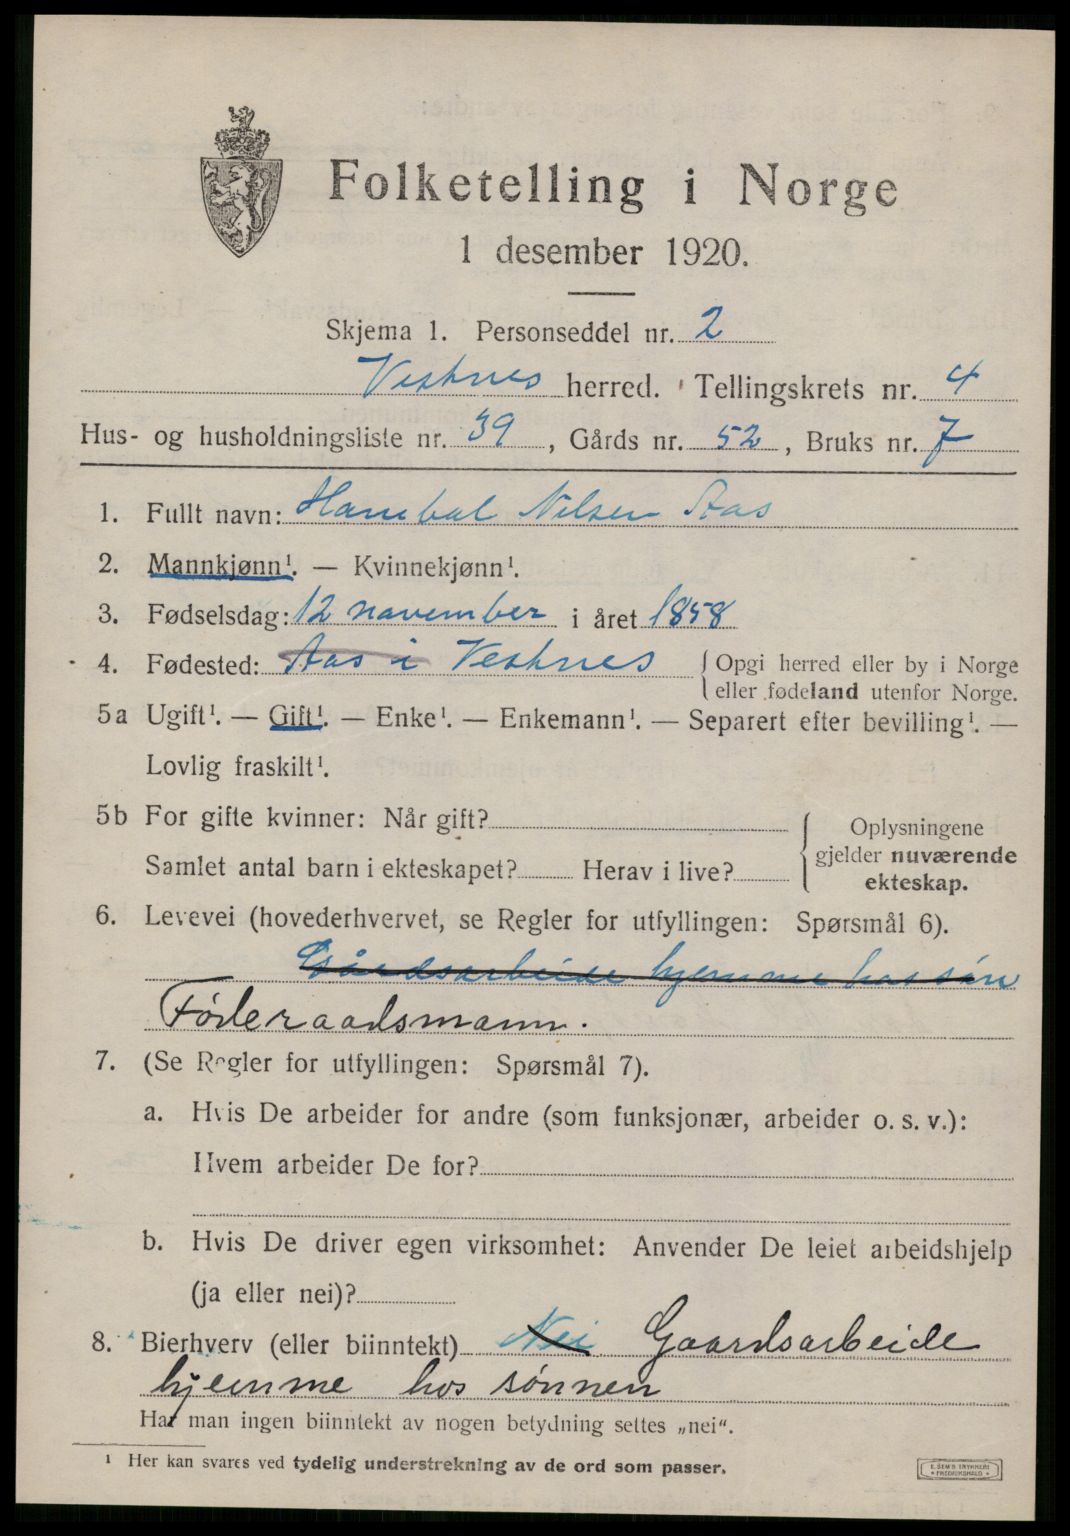 Folketelling i Norge
1 desember 1920.
Skjema 1. Personseddel nr. 2
Vestnes herred. Tellingskrets nr. 4
Hus- og husholdningsliste nr. 39, Gårds nr. 52, Bruks nr. 7
1. Fullt navn: Hanibal Nilsen Aas
2. Mannkjønn¹. — Kvinnekjønn¹.
3. Fødselsdag: 12 november i året 1858
4. Fødested: Aas i Vestnes { Opgi herred eller by i Norge
eller fødeland utenfor Norge.
5a Ugift¹. — Gift¹. — Enke¹. — Enkemann¹. — Separert efter bevilling¹. —
Lovlig fraskilt¹.
5b For gifte kvinner: Når gift?
Samlet antal barn i ekteskapet? Herav i live?
{ Oplysningene
gjelder nuværende
ekteskap.
6. Levevei (hovederhvervet, se Regler for utfyllingen: Spørsmål 6).
Gårdsarbeide hjemme hos søn
Føderaadsmann.
7. (Se Regler for utfyllingen: Spørsmål 7).
a. Hvis De arbeider for andre (som funksjonær, arbeider o. s. v.):
Hvem arbeider De for?
b. Hvis De driver egen virksomhet: Anvender De leiet arbeidshjelp
(ja eller nei)?
8. Bierhverv (eller biinntekt) Nei Gaardsarbeide
hjemme hos sønnen
Har man ingen biinntekt av nogen betydning settes „nei".
¹ Her kan svares ved tydelig understrekning av de ord som passer.
E. SEM'S TRYKKERI
FREDRIKSHALD